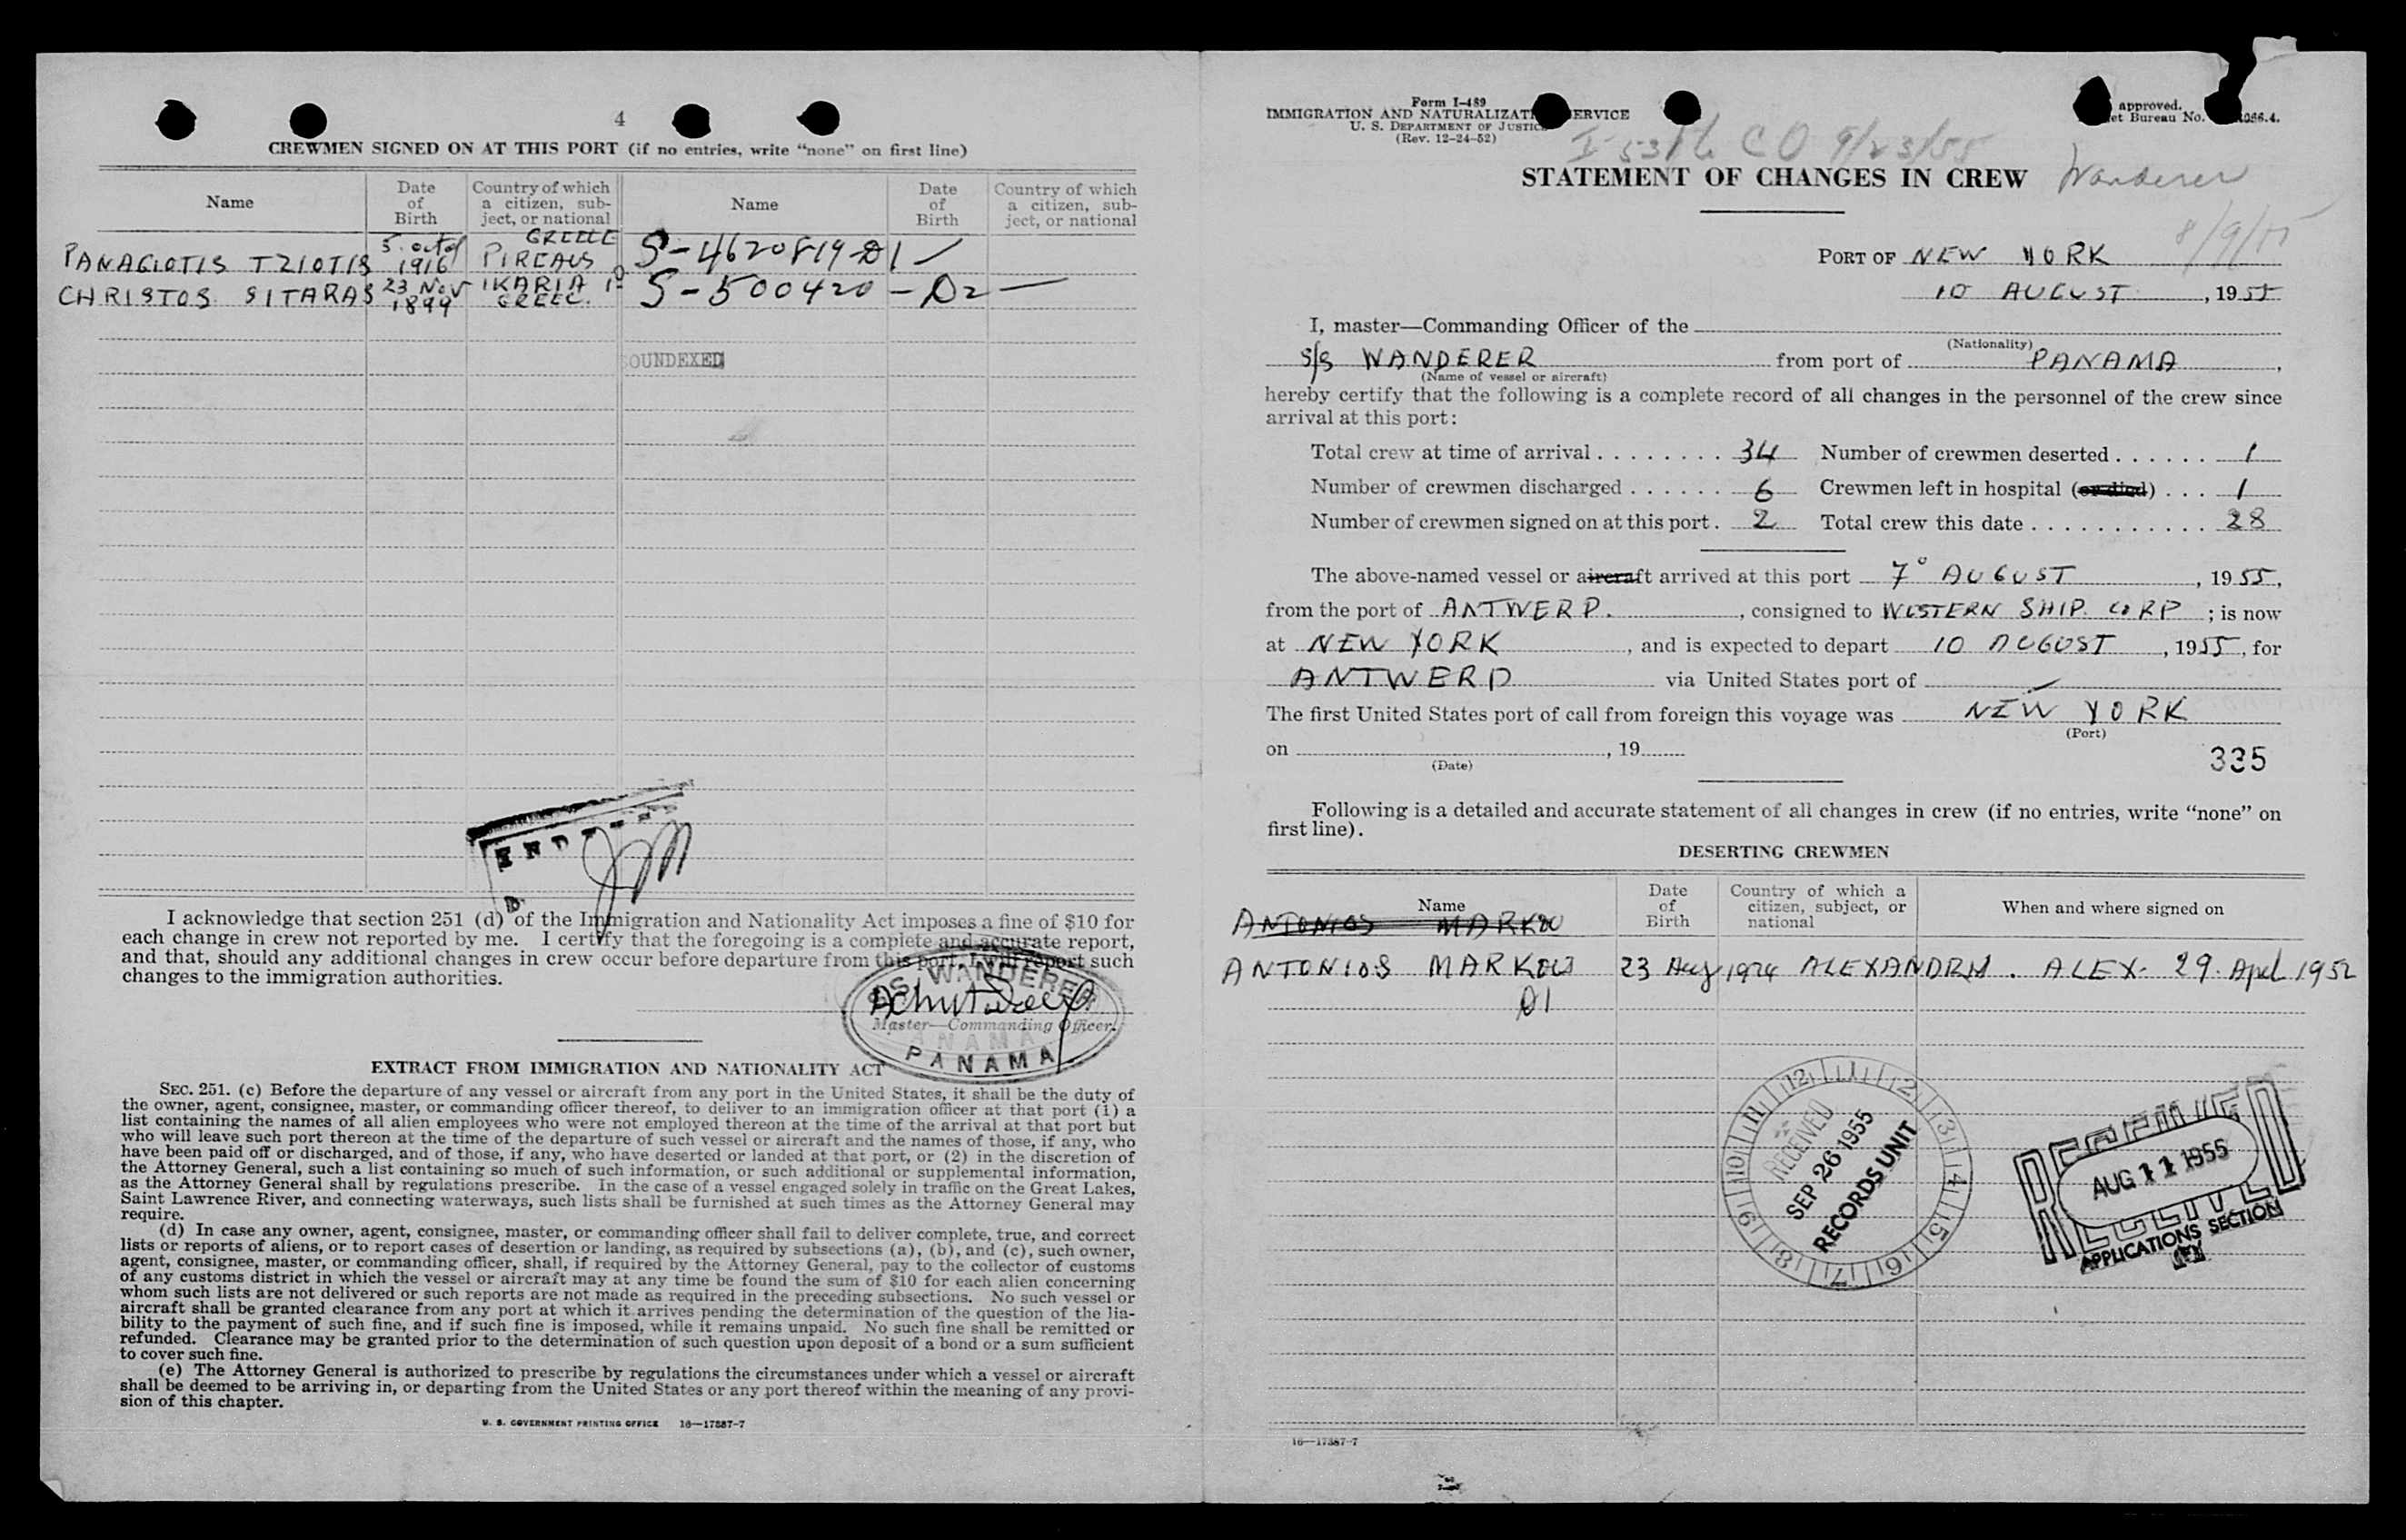 4
CREWMEN SIGNED ON AT THIS PORT (if no entries, write “none” on first line)
Name
Date of Birth
Country of which a citizen, subject, or national
Name
Date of Birth
Country of which a citizen, subject, or national
PANAGIOTIS TZIOTIS 5. octob 1916 PIREAUS GREECE S-4620819-D1
CHRISTOS SITARAS 23 Nov 1899 IKARIA GREEC. S-500420-D2
SOUNDEXED
END
I acknowledge that section 251 (d) of the Immigration and Nationality Act imposes a fine of $10 for
each change in crew not reported by me. I certify that the foregoing is a complete and accurate report,
and that, should any additional changes in crew occur before departure from this port, I will report such
changes to the immigration authorities.
S.S. WANDERER
Master—Commanding Officer.
PANAMA
EXTRACT FROM IMMIGRATION AND NATIONALITY ACT
SEC. 251. (c) Before the departure of any vessel or aircraft from any port in the United States, it shall be the duty of
the owner, agent, consignee, master, or commanding officer thereof, to deliver to an immigration officer at that port (1) a
list containing the names of all alien employees who were not employed thereon at the time of the arrival at that port but
who will leave such port thereon at the time of the departure of such vessel or aircraft and the names of those, if any, who
have been paid off or discharged, and of those, if any, who have deserted or landed at that port, or (2) in the discretion of
the Attorney General, such a list containing so much of such information, or such additional or supplemental information,
as the Attorney General shall by regulations prescribe. In the case of a vessel engaged solely in traffic on the Great Lakes,
Saint Lawrence River, and connecting waterways, such lists shall be furnished at such times as the Attorney General may
require.
(d) In case any owner, agent, consignee, master, or commanding officer shall fail to deliver complete, true, and correct
lists or reports of aliens, or to report cases of desertion or landing, as required by subsections (a), (b), and (c), such owner,
agent, consignee, master, or commanding officer, shall, if required by the Attorney General, pay to the collector of customs
of any customs district in which the vessel or aircraft may at any time be found the sum of $10 for each alien concerning
whom such lists are not delivered or such reports are not made as required in the preceding subsections. No such vessel or
aircraft shall be granted clearance from any port at which it arrives pending the determination of the question of the lia-
bility to the payment of such fine, and if such fine is imposed, while it remains unpaid. No such fine shall be remitted or
refunded. Clearance may be granted prior to the determination of such question upon deposit of a bond or a sum sufficient
to cover such fine.
(e) The Attorney General is authorized to prescribe by regulations the circumstances under which a vessel or aircraft
shall be deemed to be arriving in, or departing from the United States or any port thereof within the meaning of any provi-
sion of this chapter.
U. S. GOVERNMENT PRINTING OFFICE 16—17387-7
Form I-489
IMMIGRATION AND NATURALIZATI ERVICE
U. S. DEPARTMENT OF JUSTICE
(Rev. 12-24-52)
approved.
et Bureau No. 066.4.
CO 9/23/55
STATEMENT OF CHANGES IN CREW
Wanderer
8/9/55
PORT OF NEW YORK
10 AUGUST, 1955
I, master—Commanding Officer of the
(Nationality)
S/S WANDERER from port of PANAMA,
(Name of vessel or aircraft)
hereby certify that the following is a complete record of all changes in the personnel of the crew since
arrival at this port:
Total crew at time of arrival . . . . . . . . 34 Number of crewmen deserted . . . . . . 1
Number of crewmen discharged . . . . . . 6 Crewmen left in hospital (or died) . . . 1
Number of crewmen signed on at this port . 2 Total crew this date . . . . . . . . . . . . 28
The above-named vessel or aircraft arrived at this port 7° AUGUST, 1955,
from the port of ANTWERP., consigned to WESTERN SHIP. CORP; is now
at NEW YORK, and is expected to depart 10 AUGUST, 1955, for
ANTWERP via United States port of —
The first United States port of call from foreign this voyage was NEW YORK
(Port)
on , 19
(Date)
335
Following is a detailed and accurate statement of all changes in crew (if no entries, write “none” on
first line).
DESERTING CREWMEN
Name
Date of Birth
Country of which a citizen, subject, or national
When and where signed on
ANTONIOS MARKOU
ANTONIOS MARKOU 23 Aug 1924 ALEXANDRIA. ALEX- 29. April 1952
D1
12 1 2 3 4 5 6 7 8 9 10 11
RECEIVED
SEP 26 1955
RECORDS UNIT
RECEIVED
AUG 11 1955
APPLICATIONS SECTION
16—17387-7